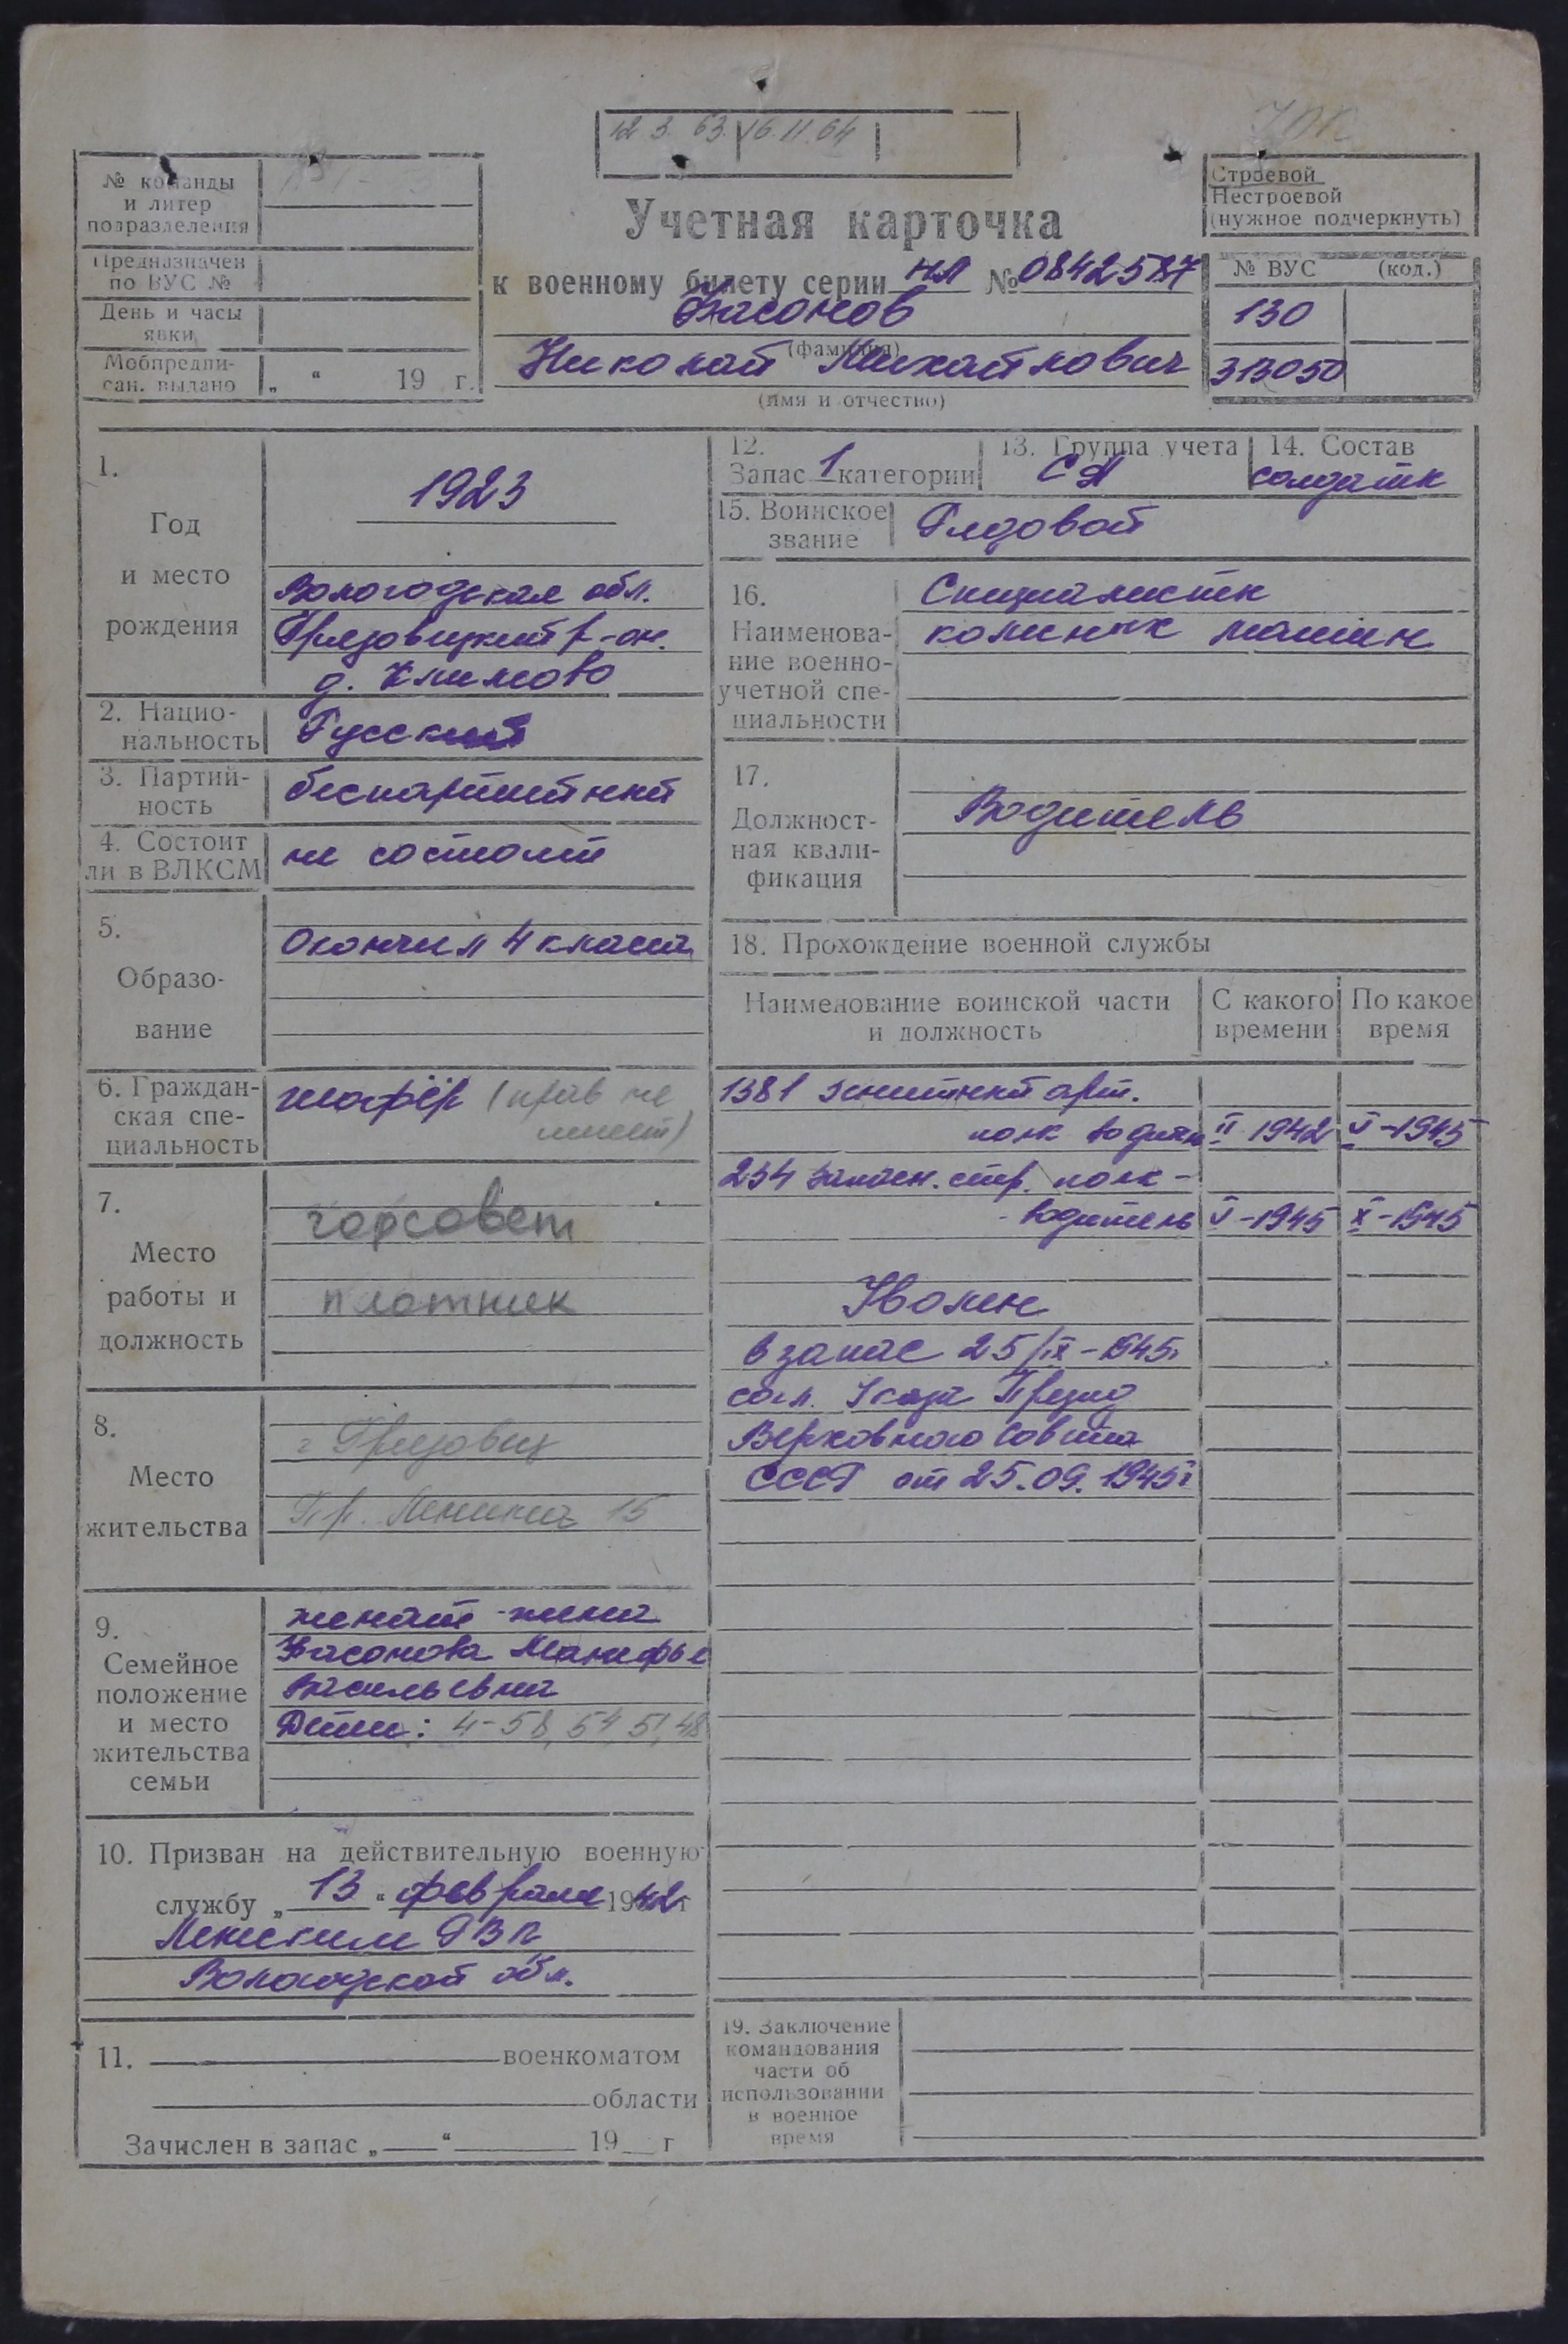 12. 3. 63. 16. 11. 64
№ команды
и литер
подразделения
Предназначен
по ВУС №
День и часы
явки
Мобпредпи-
сан. выдано „ “ 19 г.
Учетная карточка
к военному билету серии НЛ № 0842587
(фамилия)
Николай Михайлович
(имя и отчество)
Строевой
Нестроевой
(нужное подчеркнуть)
№ ВУС (код.)
130
313050
1.
Год
и место
рождения
1923
Вологодская обл.
Грязовецкий р-он.
д. Климово
2. Нацио-
нальность
Русский
3. Партий-
ность
беспартийный
4. Состоит
ли в ВЛКСМ
не состоит
5.
Образо-
вание
Окончил 4 класса
6. Граждан-
ская спе-
циальность
шофёр (прав не
имеет)
7.
Место
работы и
должность
горсовет
плотник
8.
Место
жительства
г Грязовец
Пр. Ленина 15
9.
Семейное
положение
и место
жительства
семьи
женат - жена
Васильевна
Дети: 4-58, 54, 51, 48
10. Призван на действительную военную
службу „ 13 “ февраля 1942 г
Ленским РВК
Вологодской обл.
11. военкоматом
области
Зачислен в запас „ “ 19 г
12.
Запас 1 категории
13. Группа учета
СА
14. Состав
солдатск
15. Воинское
звание
Рядовой
16.
Наименова-
ние военно-
учетной спе-
циальности
Специалисты
колесных машин
17.
Должност-
ная квали-
фикация
Водитель
18. Прохождение военной службы
Наименование воинской части
и должность
С какого
времени
По какое
время
1381 зенитный арт.
полк водитель II 1942 V-1945
234 запасн. стр. полк -
- водитель V-1945 X-1945
Уволен
в запас 25/IX-1945г
согл. Указа Презид
Верховного Совета
СССР от 25.09.1945г
19. Заключение
командования
части об
использовании
в военное
время